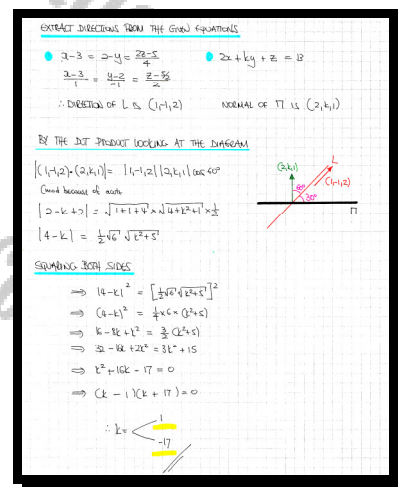 EXTRACT DIRECTIONS FROM THE GIVEN EQUATIONS
x-3 = 2-y = (2z-5)/4
(x-3)/1 = (y-2)/-1 = (z-5/2)/2
∴ DIRECTION OF L IS (1,-1,2)
2x + ky + z = 13
NORMAL OF Π IS (2,k,1)
BY THE DOT PRODUCT LOOKING AT THE DIAGRAM
|(1,-1,2)·(2,k,1)| = |1,-1,2| |2,k,1| cos 60°
(mod because of acute
|2-k+2| = √(1+1+4) × √(4+k²+1) × 1/2
|4-k| = 1/2 √6 √(k²+5)
(2,k,1)
L
(1,-1,2)
60°
30°
Π
SQUARING BOTH SIDES
⇒ |4-k|² = [1/2 √6 √(k²+5)]²
⇒ (4-k)² = 1/4 × 6 × (k²+5)
⇒ 16 - 8k + k² = 3/2 (k²+5)
⇒ 32 - 16k + 2k² = 3k² + 15
⇒ k² + 16k - 17 = 0
⇒ (k - 1)(k + 17) = 0
∴ k =
1
-17